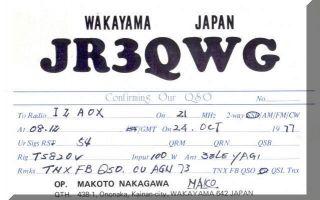 WAKAYAMA JAPAN
JR3QWG
Confirming Our QSO No.
To Radio I2AOX On 21 MHz 2-way SSB/AM/FM/CW
At 08.12 GMT On 24. OCT 1977
Ur Sigs RST 54 QRM QRN QSB
Rig TS820V Input 100 W Ant 3ELE YAGI
Rmks. TNX FB QSO. CU AGN 73 TNX FB QSO QSL Tnx
OP. MAKOTO NAKAGAWA MAKO.
QTH. 438-1, Ononaka, Kainan-city, WAKAYAMA 642 JAPAN